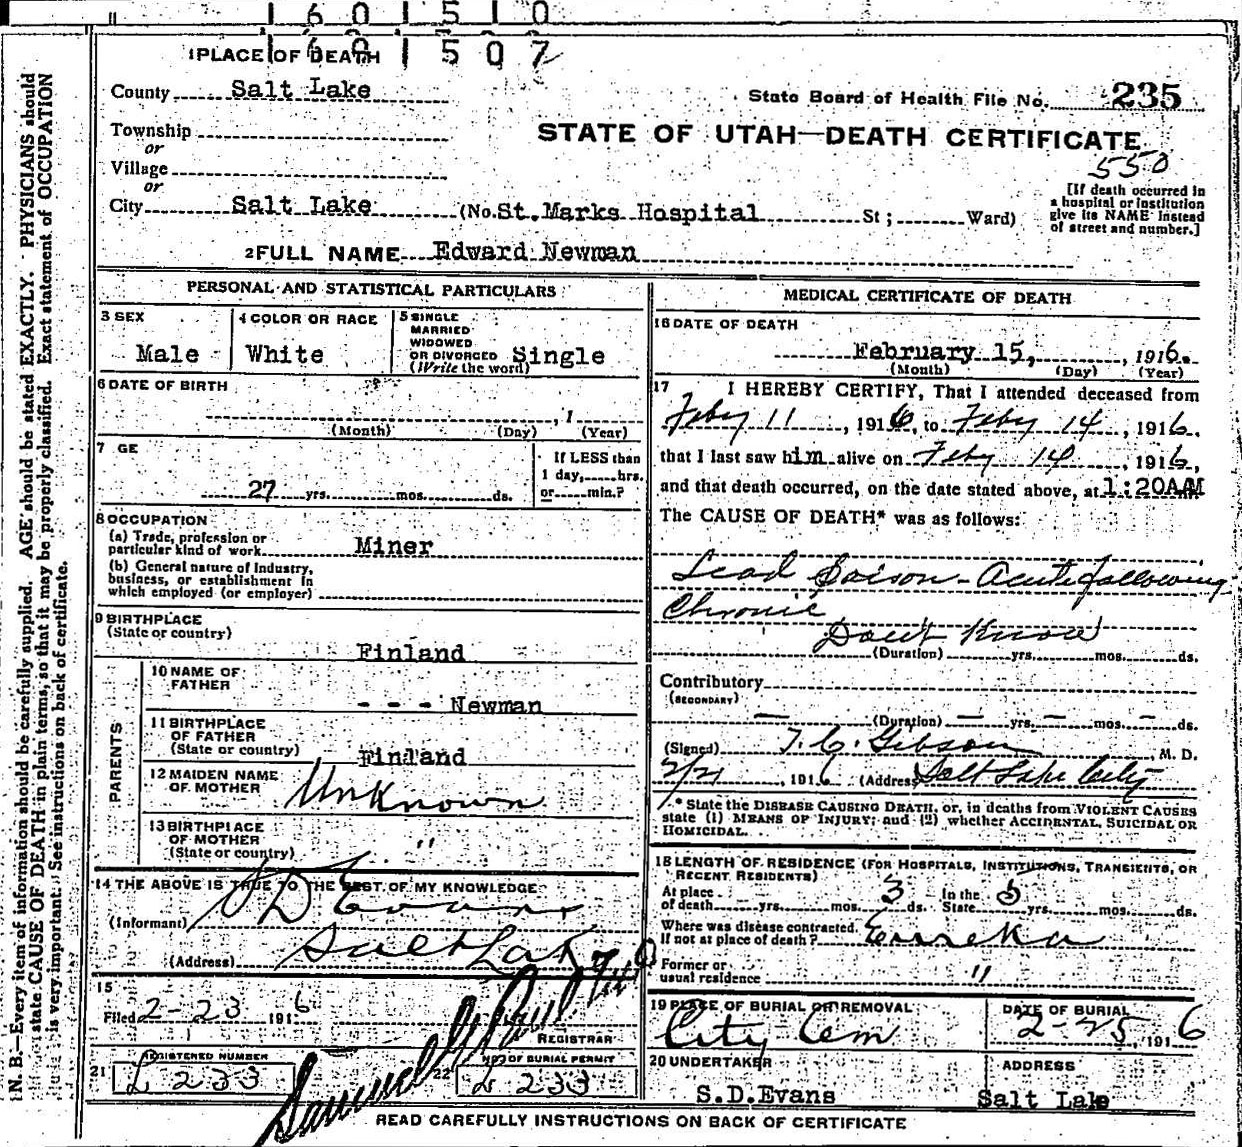 1601510
1601507
1 PLACE OF DEATH
County Salt Lake
State Board of Health File No. 235
Township
or
STATE OF UTAH—DEATH CERTIFICATE
550
Village
or
City Salt Lake (No. St. Marks Hospital St; Ward)
[If death occurred in a hospital or institution give its NAME instead of street and number.]
2 FULL NAME Edward Newman
PERSONAL AND STATISTICAL PARTICULARS
3 SEX
Male
4 COLOR OR RACE
White
5 SINGLE
MARRIED
WIDOWED
OR DIVORCED
(Write the word) Single
6 DATE OF BIRTH
, 1
(Month) (Day) (Year)
7 GE
27 yrs. mos. ds.
If LESS than
1 day, hrs.
or min.?
8 OCCUPATION
(a) Trade, profession or
particular kind of work Miner
(b) General nature of Industry,
business, or establishment in
which employed (or employer)
9 BIRTHPLACE
(State or country)
Finland
PARENTS
10 NAME OF
FATHER
- - - Newman
11 BIRTHPLACE
OF FATHER
(State or country) Finland
12 MAIDEN NAME
OF MOTHER Unknown
13 BIRTHPLACE
OF MOTHER
(State or country) "
14 THE ABOVE IS TRUE TO THE BEST OF MY KNOWLEDGE
(Informant) S D Evans
(Address) Salt Lake
15
Filed 2-23 1916
REGISTRAR
21 REGISTERED NUMBER
L 233
22 NO. OF BURIAL PERMIT
L 233
MEDICAL CERTIFICATE OF DEATH
16 DATE OF DEATH
February 15, , 1916.
(Month) (Day) (Year)
17 I HEREBY CERTIFY, That I attended deceased from
Feby 11, 1916, to Feby 14, 1916,
that I last saw him alive on Feby 14, 1916,
and that death occurred, on the date stated above, at 1:20AM
The CAUSE OF DEATH* was as follows:
Lead Poison - Acute following
Chronic
Dont Know
(Duration) yrs. mos. ds.
Contributory
(SECONDARY)
— (Duration) — yrs. — mos. — ds.
(Signed) T. C. Gibson, M. D.
2/21, 1916 (Address) Salt Lake City
* State the DISEASE CAUSING DEATH, or, in deaths from VIOLENT CAUSES
state (1) MEANS OF INJURY; and (2) whether ACCIDENTAL, SUICIDAL OR
HOMICIDAL.
18 LENGTH OF RESIDENCE (FOR HOSPITALS, INSTITUTIONS, TRANSIENTS, OR
RECENT RESIDENTS)
At place
of death yrs. mos. 3 ds. In the State 5 yrs. mos. ds.
Where was disease contracted,
If not at place of death? Eureka
Former or
usual residence "
19 PLACE OF BURIAL OR REMOVAL
City Cem
DATE OF BURIAL
2-25, 1916
20 UNDERTAKER
S.D.Evans
ADDRESS
Salt Lake
READ CAREFULLY INSTRUCTIONS ON BACK OF CERTIFICATE
N. B.—Every item of information should be carefully supplied. AGE should be stated EXACTLY. PHYSICIANS should
state CAUSE OF DEATH in plain terms, so that it may be properly classified. Exact statement of OCCUPATION
is very important. See instructions on back of certificate.